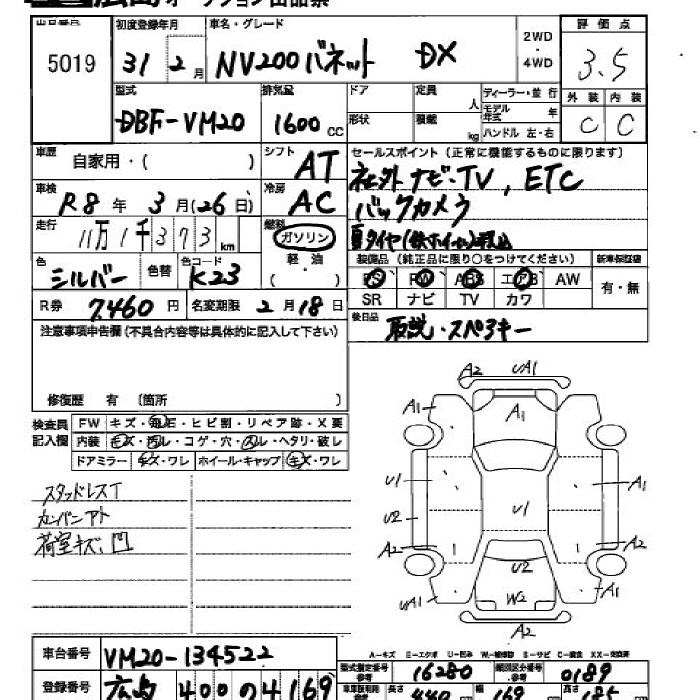 広島オークション出品票
出品番号 初度登録年月 車名・グレード 2WD・4WD 評価点
5019 31 2月 NV200バネット DX 3.5
型式 排気量 ドア 定員 人 ディーラー・並行 外装 内装
DBF-VM20 1600cc 形状 積載 kg モデル年式 年 ハンドル 左・右 C C
車歴 自家用・( ) シフト AT セールスポイント(正常に機能するものに限ります)
社外ナビ・TV, ETC
車検 R8年 3月(26日) 冷房 AC バックカメラ
走行 11万1千373km 燃料 ガソリン 夏タイヤ(鉄ホイール)積込
軽・油 ( )
装備品(純正品に限り○をつけてください) 新車保証書
色 シルバー 色替 色コード K23 PS PW ABS エアB AW 有・無
SR ナビ TV カワ
R券 7,460円 名変期限 2月18日 後日品 取説・スペアキー
注意事項申告欄(不具合内容等は具体的に記入して下さい)
修復歴 有 (箇所 )
検査員記入欄 FW キズ・飛E・ヒビ割・リペア跡・X要
内装 キズ・汚レ・コゲ・穴・スレ・ヘタリ・破レ
ドアミラー キズ・ワレ ホイール・キャップ キズ・ワレ
スタッドレスT
カンバンアト
荷室キズ、凹
A2 UA1
A1 A1
U1 U1 A1
U2
A2 U2 A2
UA1 W2 A1
A2
A-キズ E-エクボ U-凹み W-補修跡 S-サビ C-腐食 XX-交換済
車台番号 VM20-134522
型式指定番号 参考 16280 類別区分番号 参考 0189
登録番号 広島 400 の 4169
長さ 440 cm 幅 169 cm 高さ 185